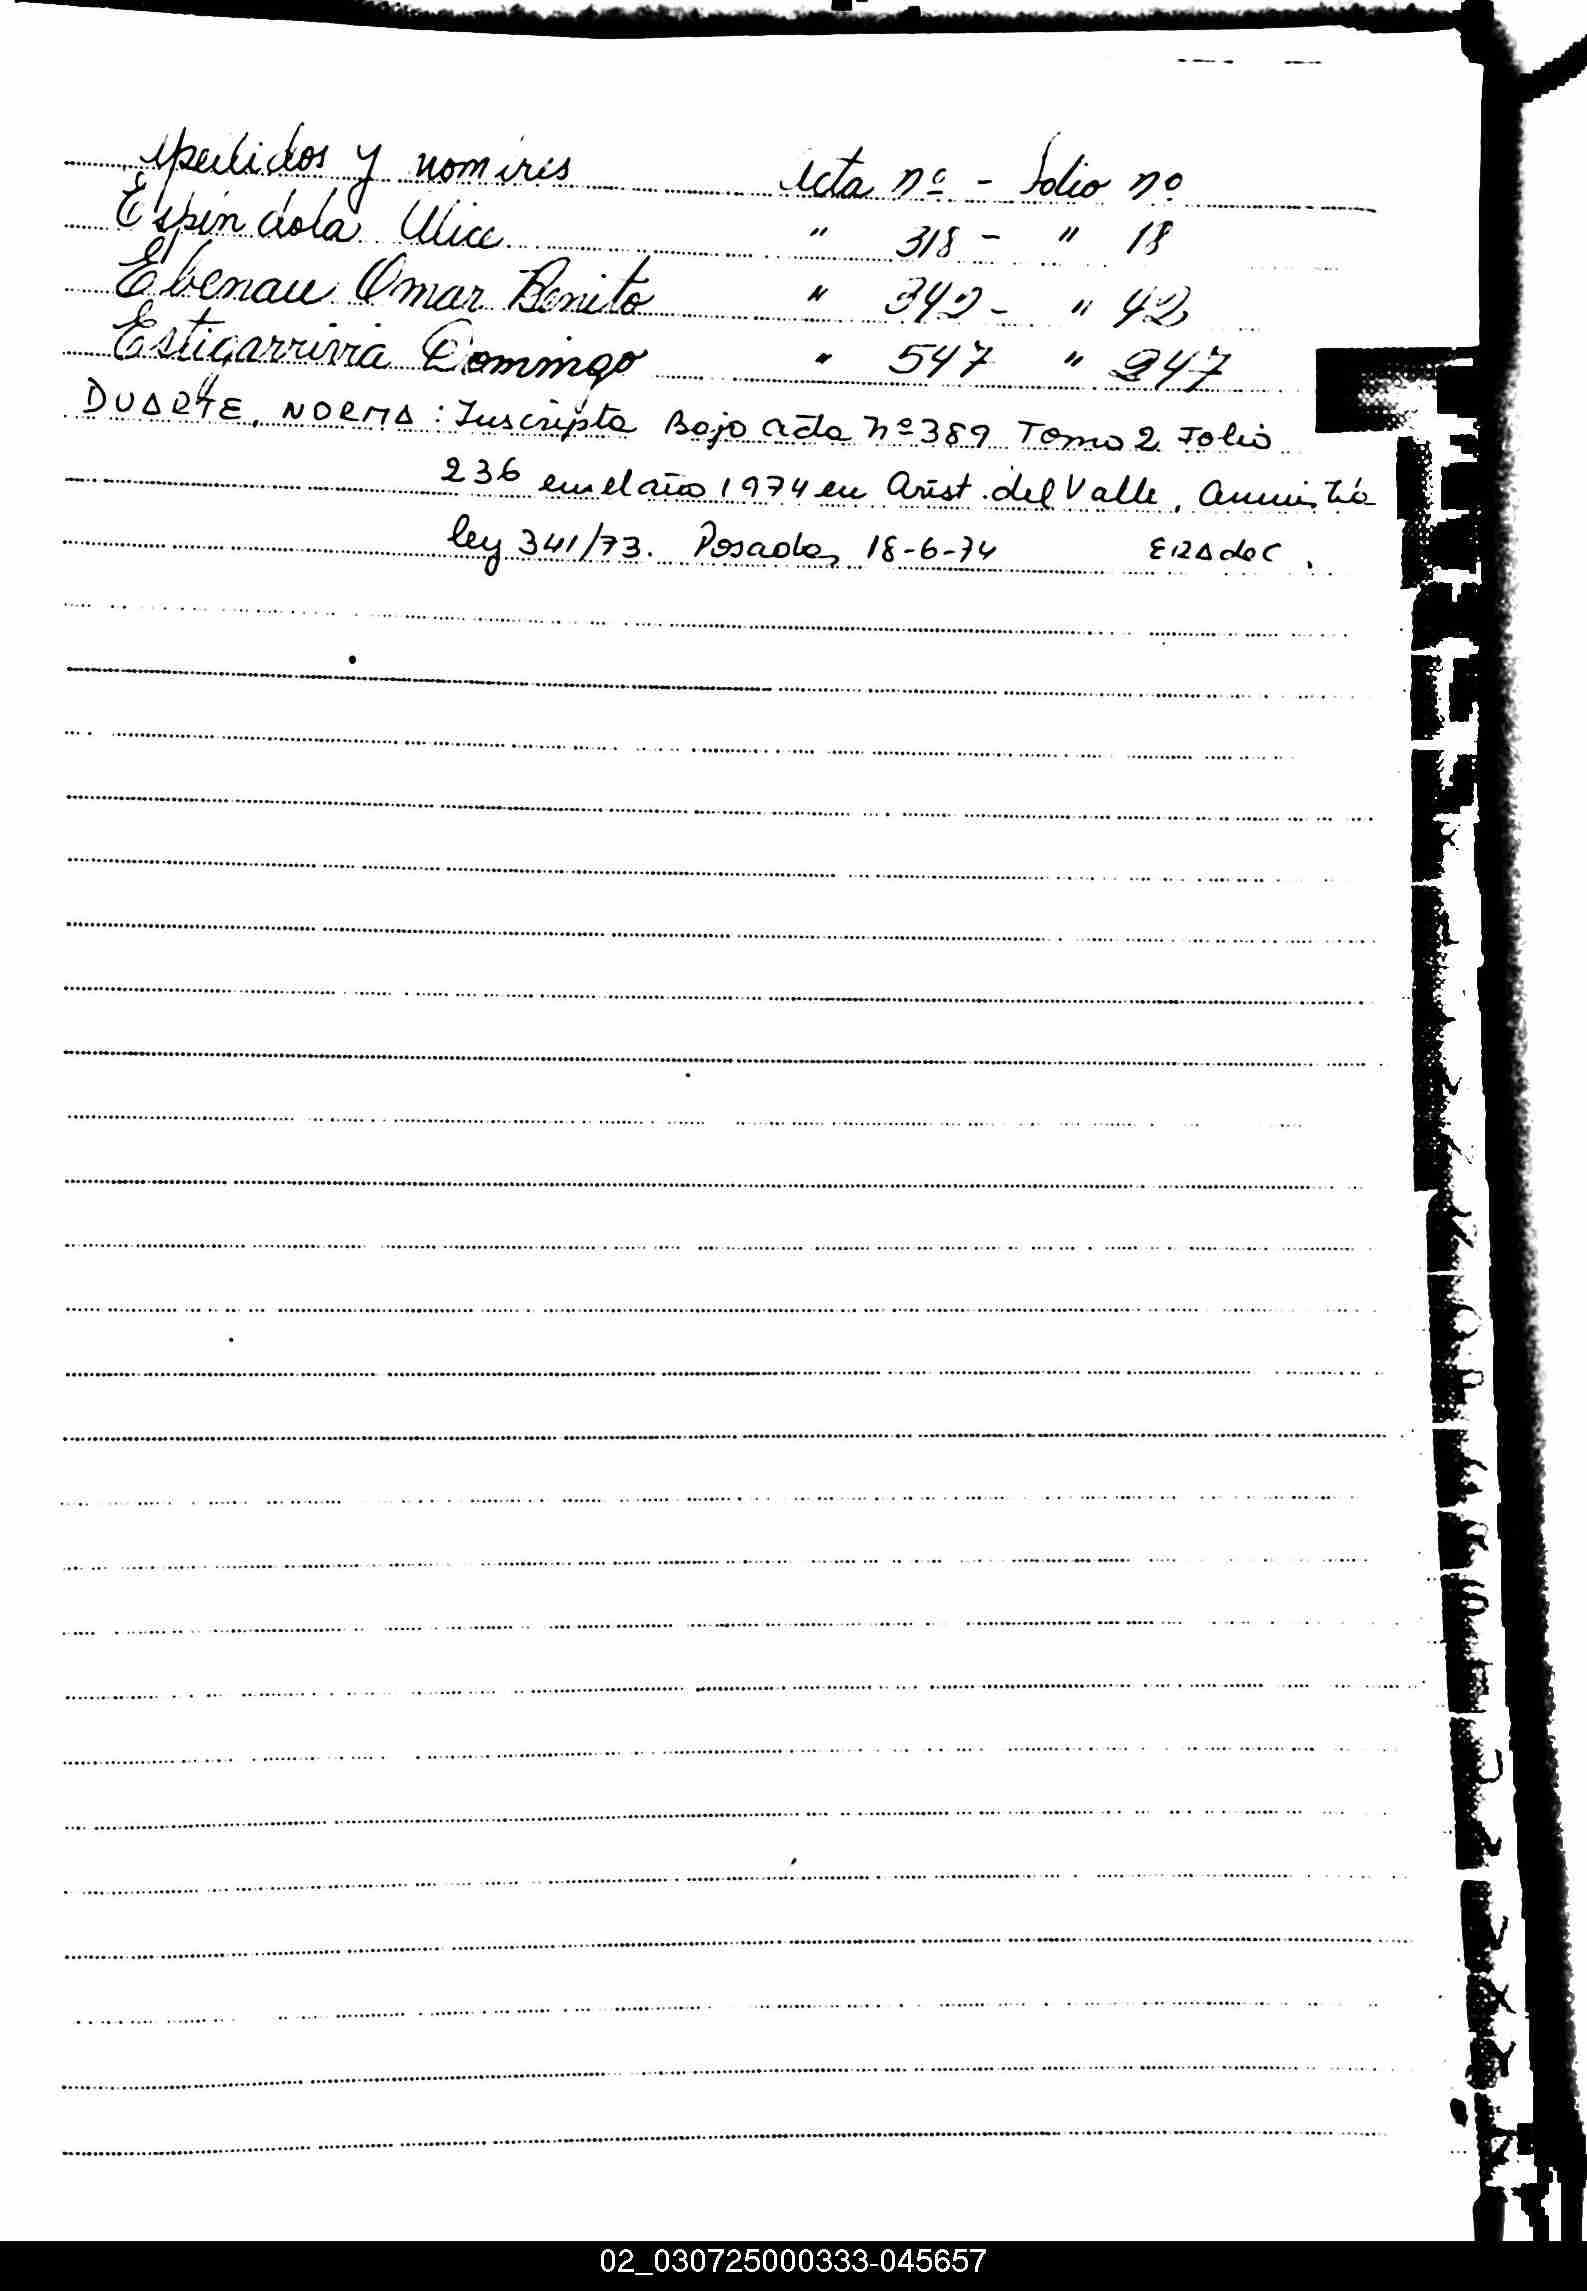 Apellidos y nombres Acta nº - Folio nº
Espindola Alice " 318 - " 18
Ebenau Omar Benito " 342 - " 42
Estigarrivia Domingo " 547 " 247
DUARTE, NORMA: Inscripta Bajo acta nº 389 Tomo 2 Folio
236 en el año 1974 en Arist. del Valle, Amnistía
ley 341/73. Posadas, 18-6-74
02_030725000333-045657